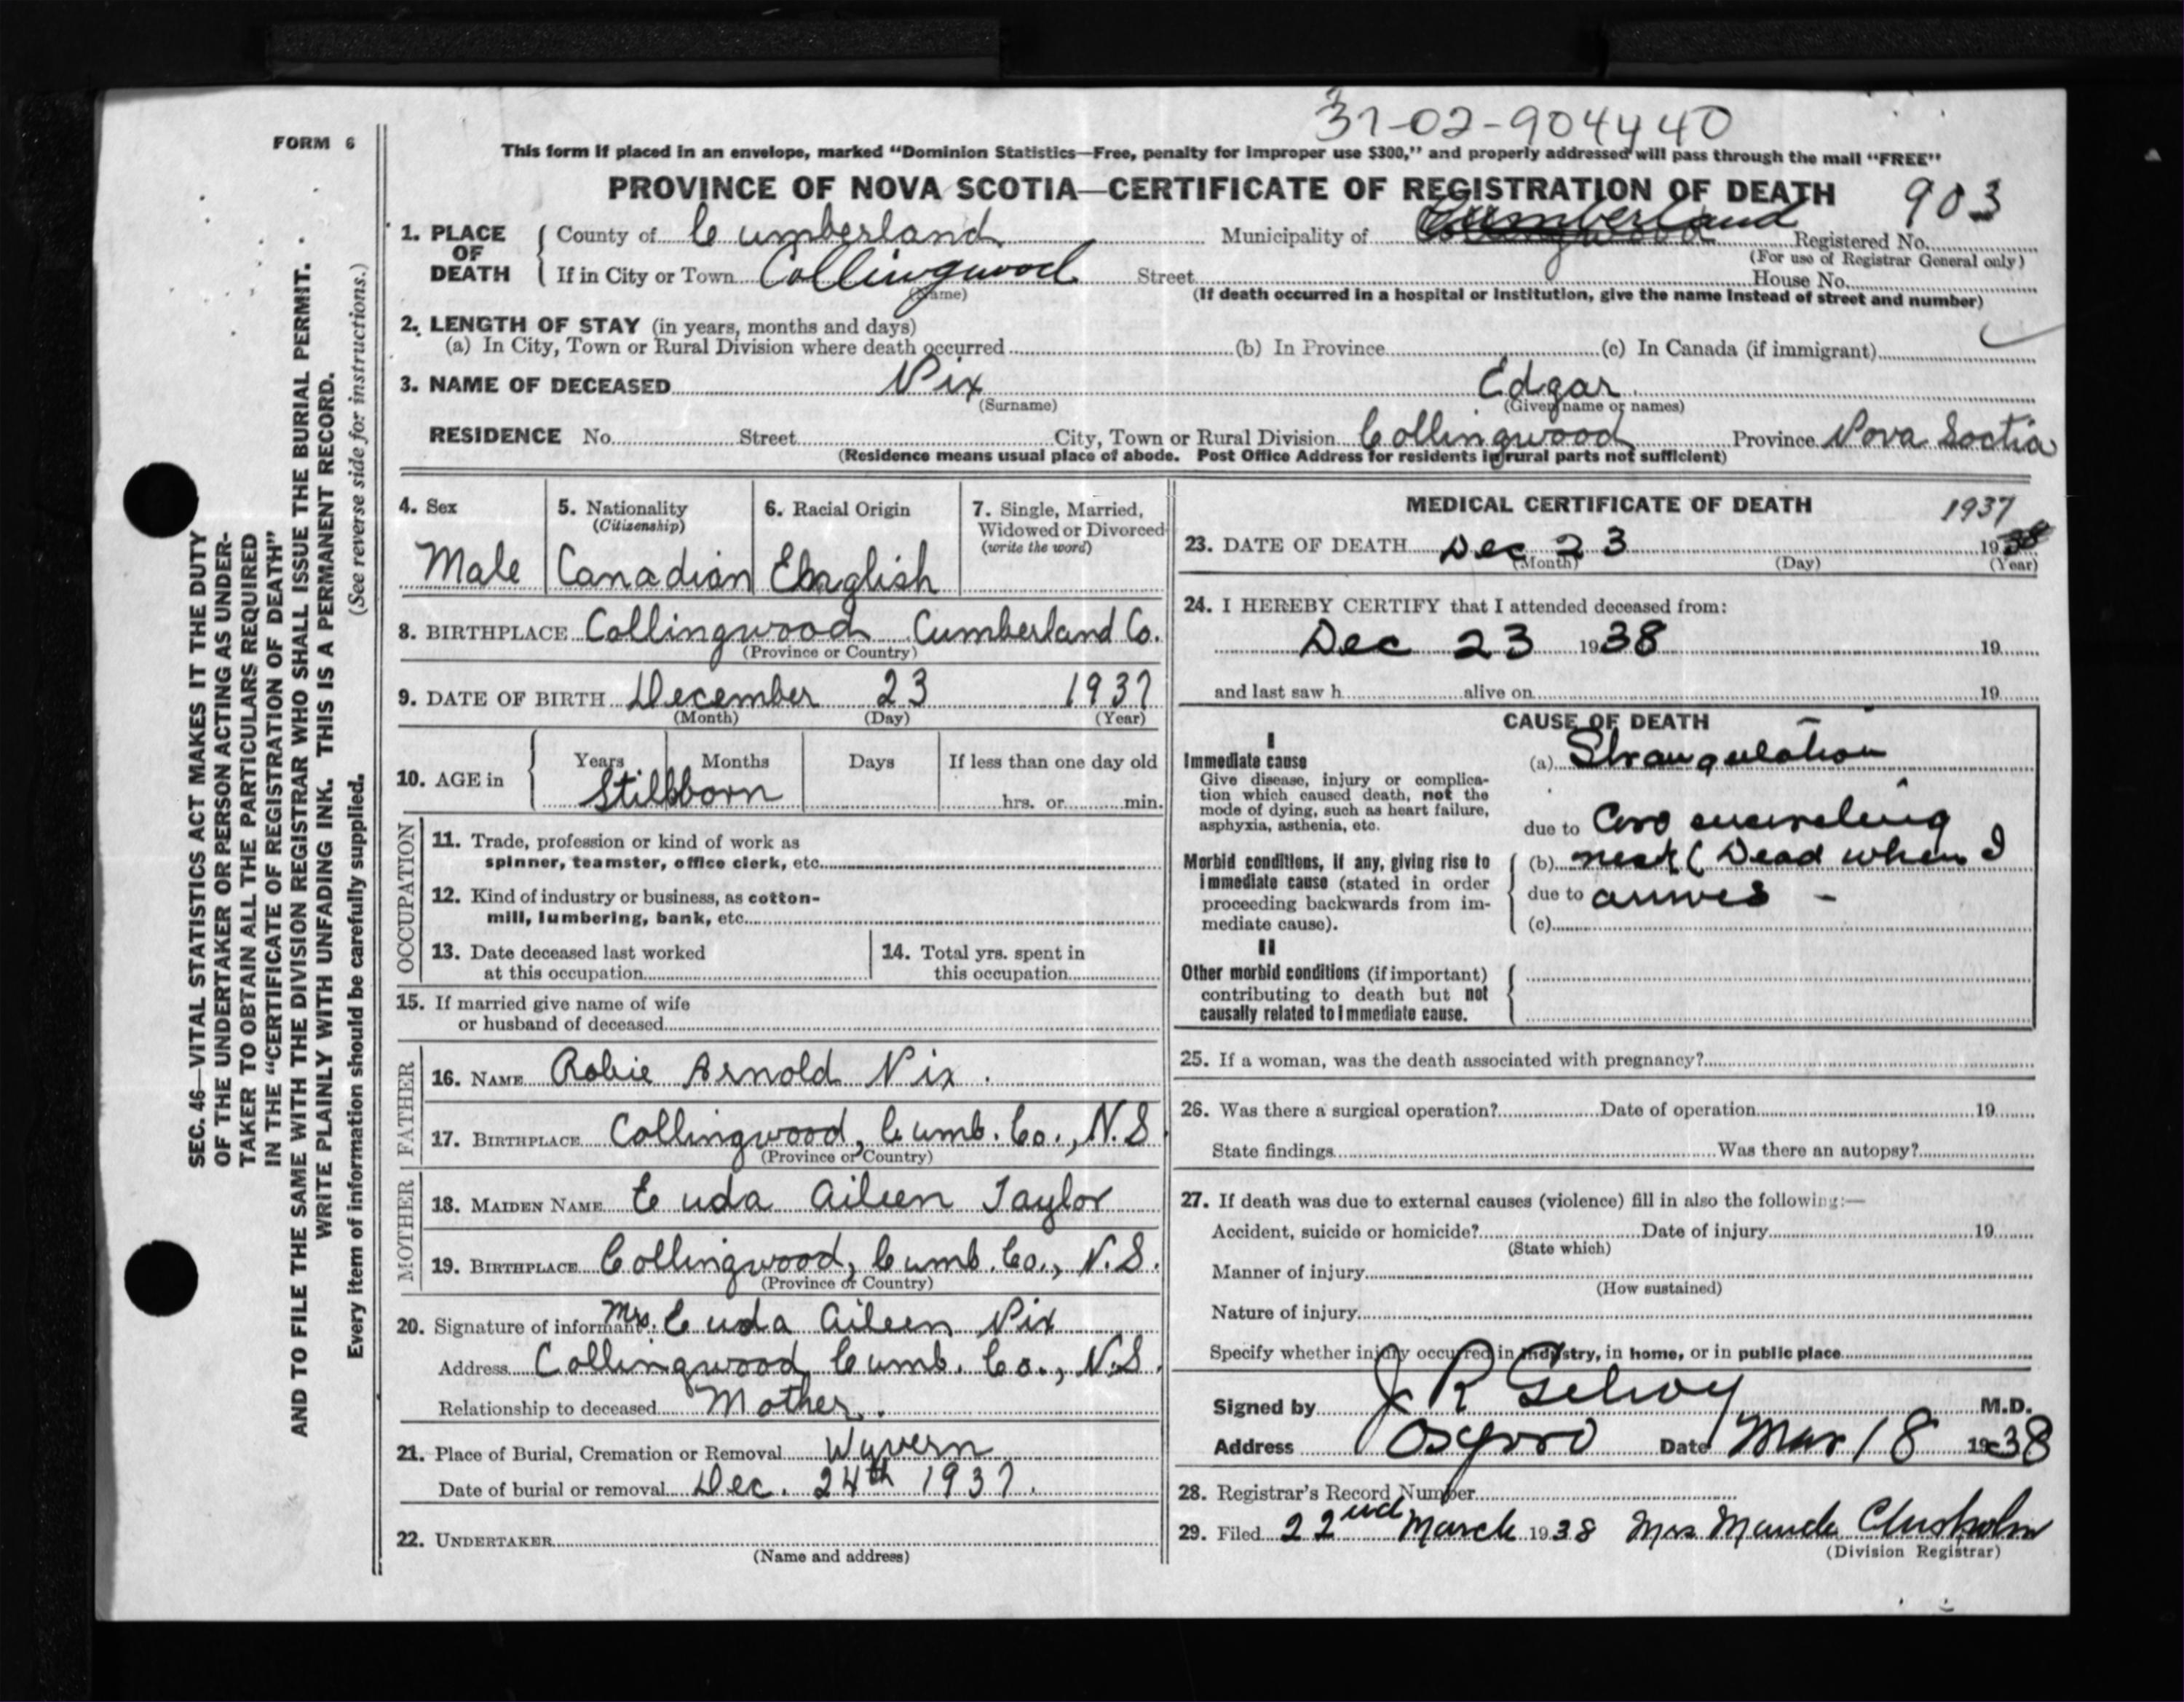 37-02-904440
FORM 6
This form if placed in an envelope, marked “Dominion Statistics—Free, penalty for improper use $300,” and properly addressed will pass through the mail “FREE”
PROVINCE OF NOVA SCOTIA—CERTIFICATE OF REGISTRATION OF DEATH
903
1. PLACE OF DEATH
County of Cumberland Municipality of Cumberland Registered No.
(For use of Registrar General only)
If in City or Town Collingwood Street House No.
(Name) (If death occurred in a hospital or institution, give the name instead of street and number)
2. LENGTH OF STAY (in years, months and days)
(a) In City, Town or Rural Division where death occurred (b) In Province (c) In Canada (if immigrant)
3. NAME OF DECEASED Nix Edgar
(Surname) (Given name or names)
RESIDENCE No. Street City, Town or Rural Division Collingwood Province Nova Soctia
(Residence means usual place of abode. Post Office Address for residents in rural parts not sufficient)
4. Sex
Male
5. Nationality
(Citizenship)
Canadian
6. Racial Origin
English
7. Single, Married,
Widowed or Divorced
(write the word)
8. BIRTHPLACE Collingwood Cumberland Co.
(Province or Country)
9. DATE OF BIRTH December 23 1937
(Month) (Day) (Year)
10. AGE in
Years Months Days If less than one day old
Stillborn hrs. or min.
OCCUPATION
11. Trade, profession or kind of work as
spinner, teamster, office clerk, etc.
12. Kind of industry or business, as cotton-
mill, lumbering, bank, etc.
13. Date deceased last worked
at this occupation
14. Total yrs. spent in
this occupation
15. If married give name of wife
or husband of deceased
FATHER
16. NAME Robie Arnold Nix.
17. BIRTHPLACE Collingwood, Cumb. Co., N.S
(Province or Country)
MOTHER
18. MAIDEN NAME Euda Aileen Taylor
19. BIRTHPLACE Collingwood, Cumb. Co., N.S.
(Province or Country)
20. Signature of informant Mrs. Euda Aileen Nix
Address Collingwood Cumb. Co., N.S.
Relationship to deceased Mother.
21. Place of Burial, Cremation or Removal Wyvern
Date of burial or removal Dec. 24th 1937.
22. UNDERTAKER
(Name and address)
MEDICAL CERTIFICATE OF DEATH
1937
23. DATE OF DEATH Dec 23 1938
(Month) (Day) (Year)
24. I HEREBY CERTIFY that I attended deceased from:
Dec 23 1938 19
and last saw h alive on 19
CAUSE OF DEATH
I
Immediate cause
Give disease, injury or complica-
tion which caused death, not the
mode of dying, such as heart failure,
asphyxia, asthenia, etc.
(a) Strangulation
due to Cord encircling
Morbid conditions, if any, giving rise to
immediate cause (stated in order
proceeding backwards from im-
mediate cause).
(b) neck (Dead when I
due to
(c)
II
Other morbid conditions (if important)
contributing to death but not
causally related to immediate cause.
25. If a woman, was the death associated with pregnancy?
26. Was there a surgical operation? Date of operation 19
State findings Was there an autopsy?
27. If death was due to external causes (violence) fill in also the following:—
Accident, suicide or homicide? Date of injury 19
(State which)
Manner of injury
(How sustained)
Nature of injury
Specify whether injury occurred in industry, in home, or in public place
Signed by J R Gilroy M.D.
Address Date Mar 18 1938
28. Registrar's Record Number
29. Filed 22nd March 1938 Mrs Maude Chisholm
(Division Registrar)
SEC. 46—VITAL STATISTICS ACT MAKES IT THE DUTY
OF THE UNDERTAKER OR PERSON ACTING AS UNDER-
TAKER TO OBTAIN ALL THE PARTICULARS REQUIRED
IN THE “CERTIFICATE OF REGISTRATION OF DEATH”
AND TO FILE THE SAME WITH THE DIVISION REGISTRAR WHO SHALL ISSUE THE BURIAL PERMIT.
WRITE PLAINLY WITH UNFADING INK. THIS IS A PERMANENT RECORD.
Every item of information should be carefully supplied. (See reverse side for instructions.)